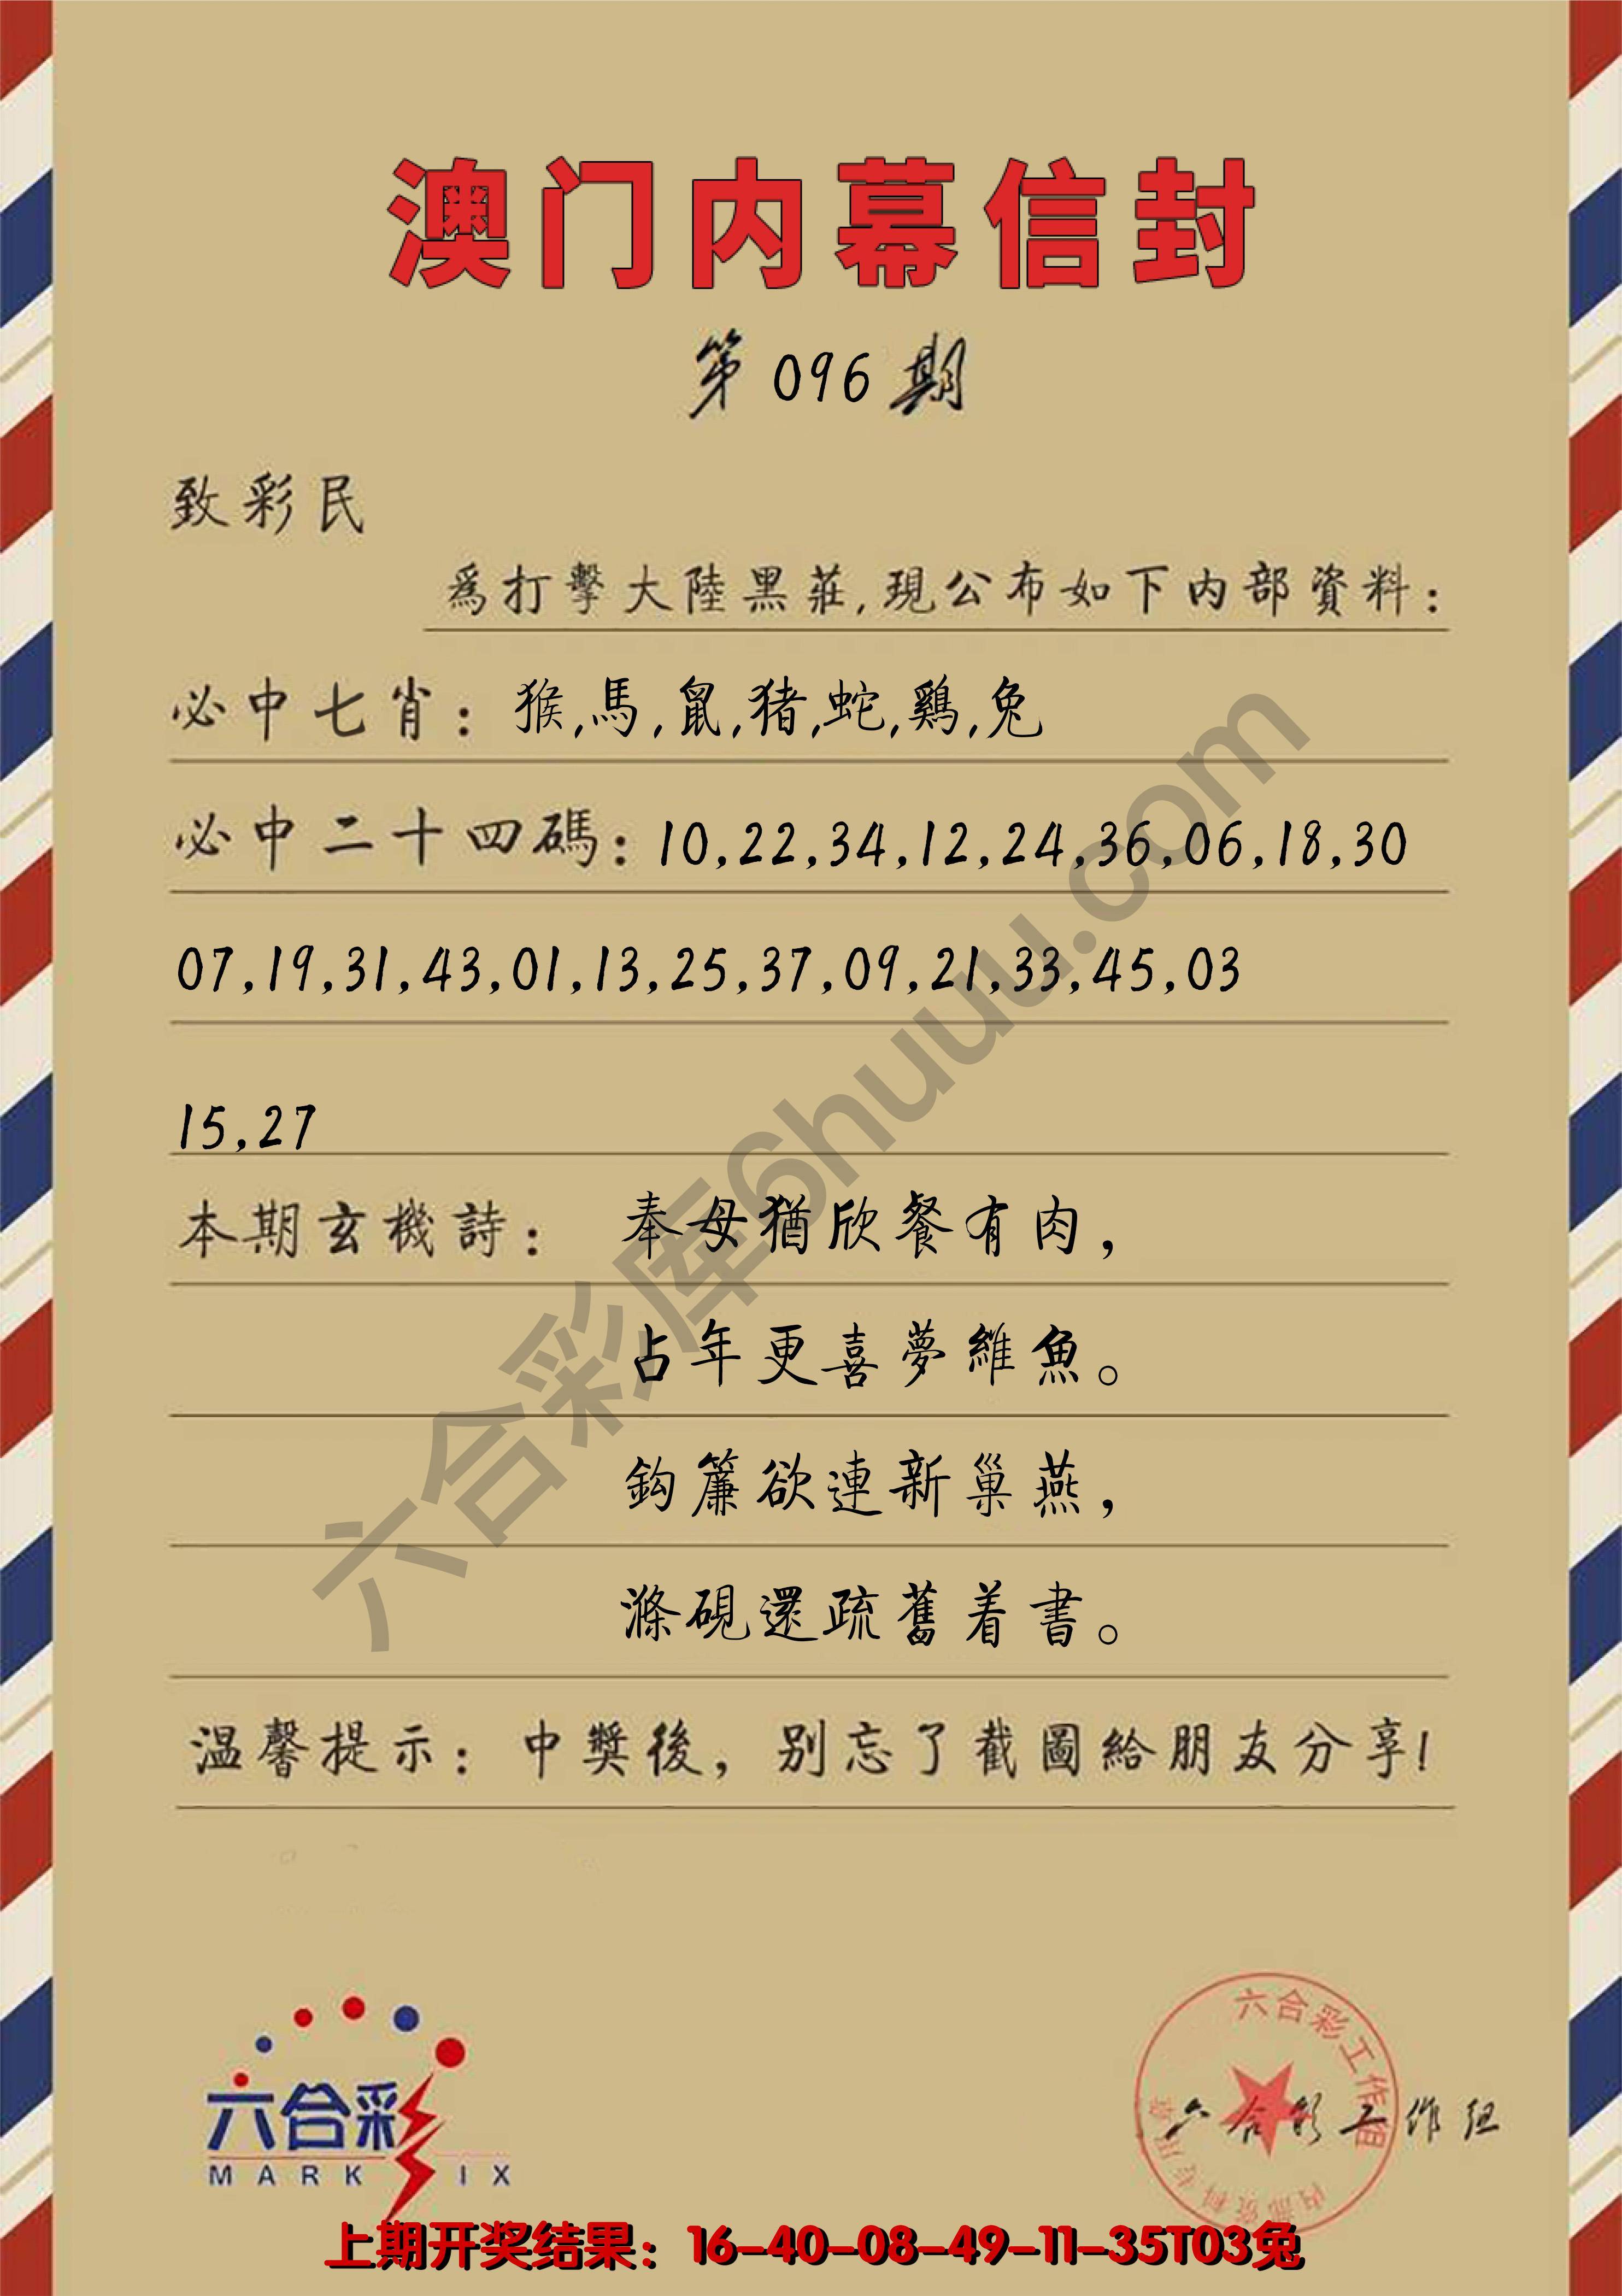 澳门内幕信封
第096期
致彩民
為打擊大陸黑莊,現公布如下内部資料:
必中七肖: 猴,馬,鼠,猪,蛇,鷄,兔
必中二十四碼: 10,22,34,12,24,36,06,18,30
07,19,31,43,01,13,25,37,09,21,33,45,03
15,27
本期玄機詩: 奉母猶欣餐有肉,
占年更喜夢維魚。
鈎簾欲連新巢燕,
滌硯還疏舊着書。
温馨提示: 中獎後, 别忘了截圖給朋友分享!
六合彩库6huuu.com
六合彩
MARK IX
六合彩工作组
内部资料专用章
六合彩工作组
上期开奖结果: 16-40-08-49-11-35T03兔